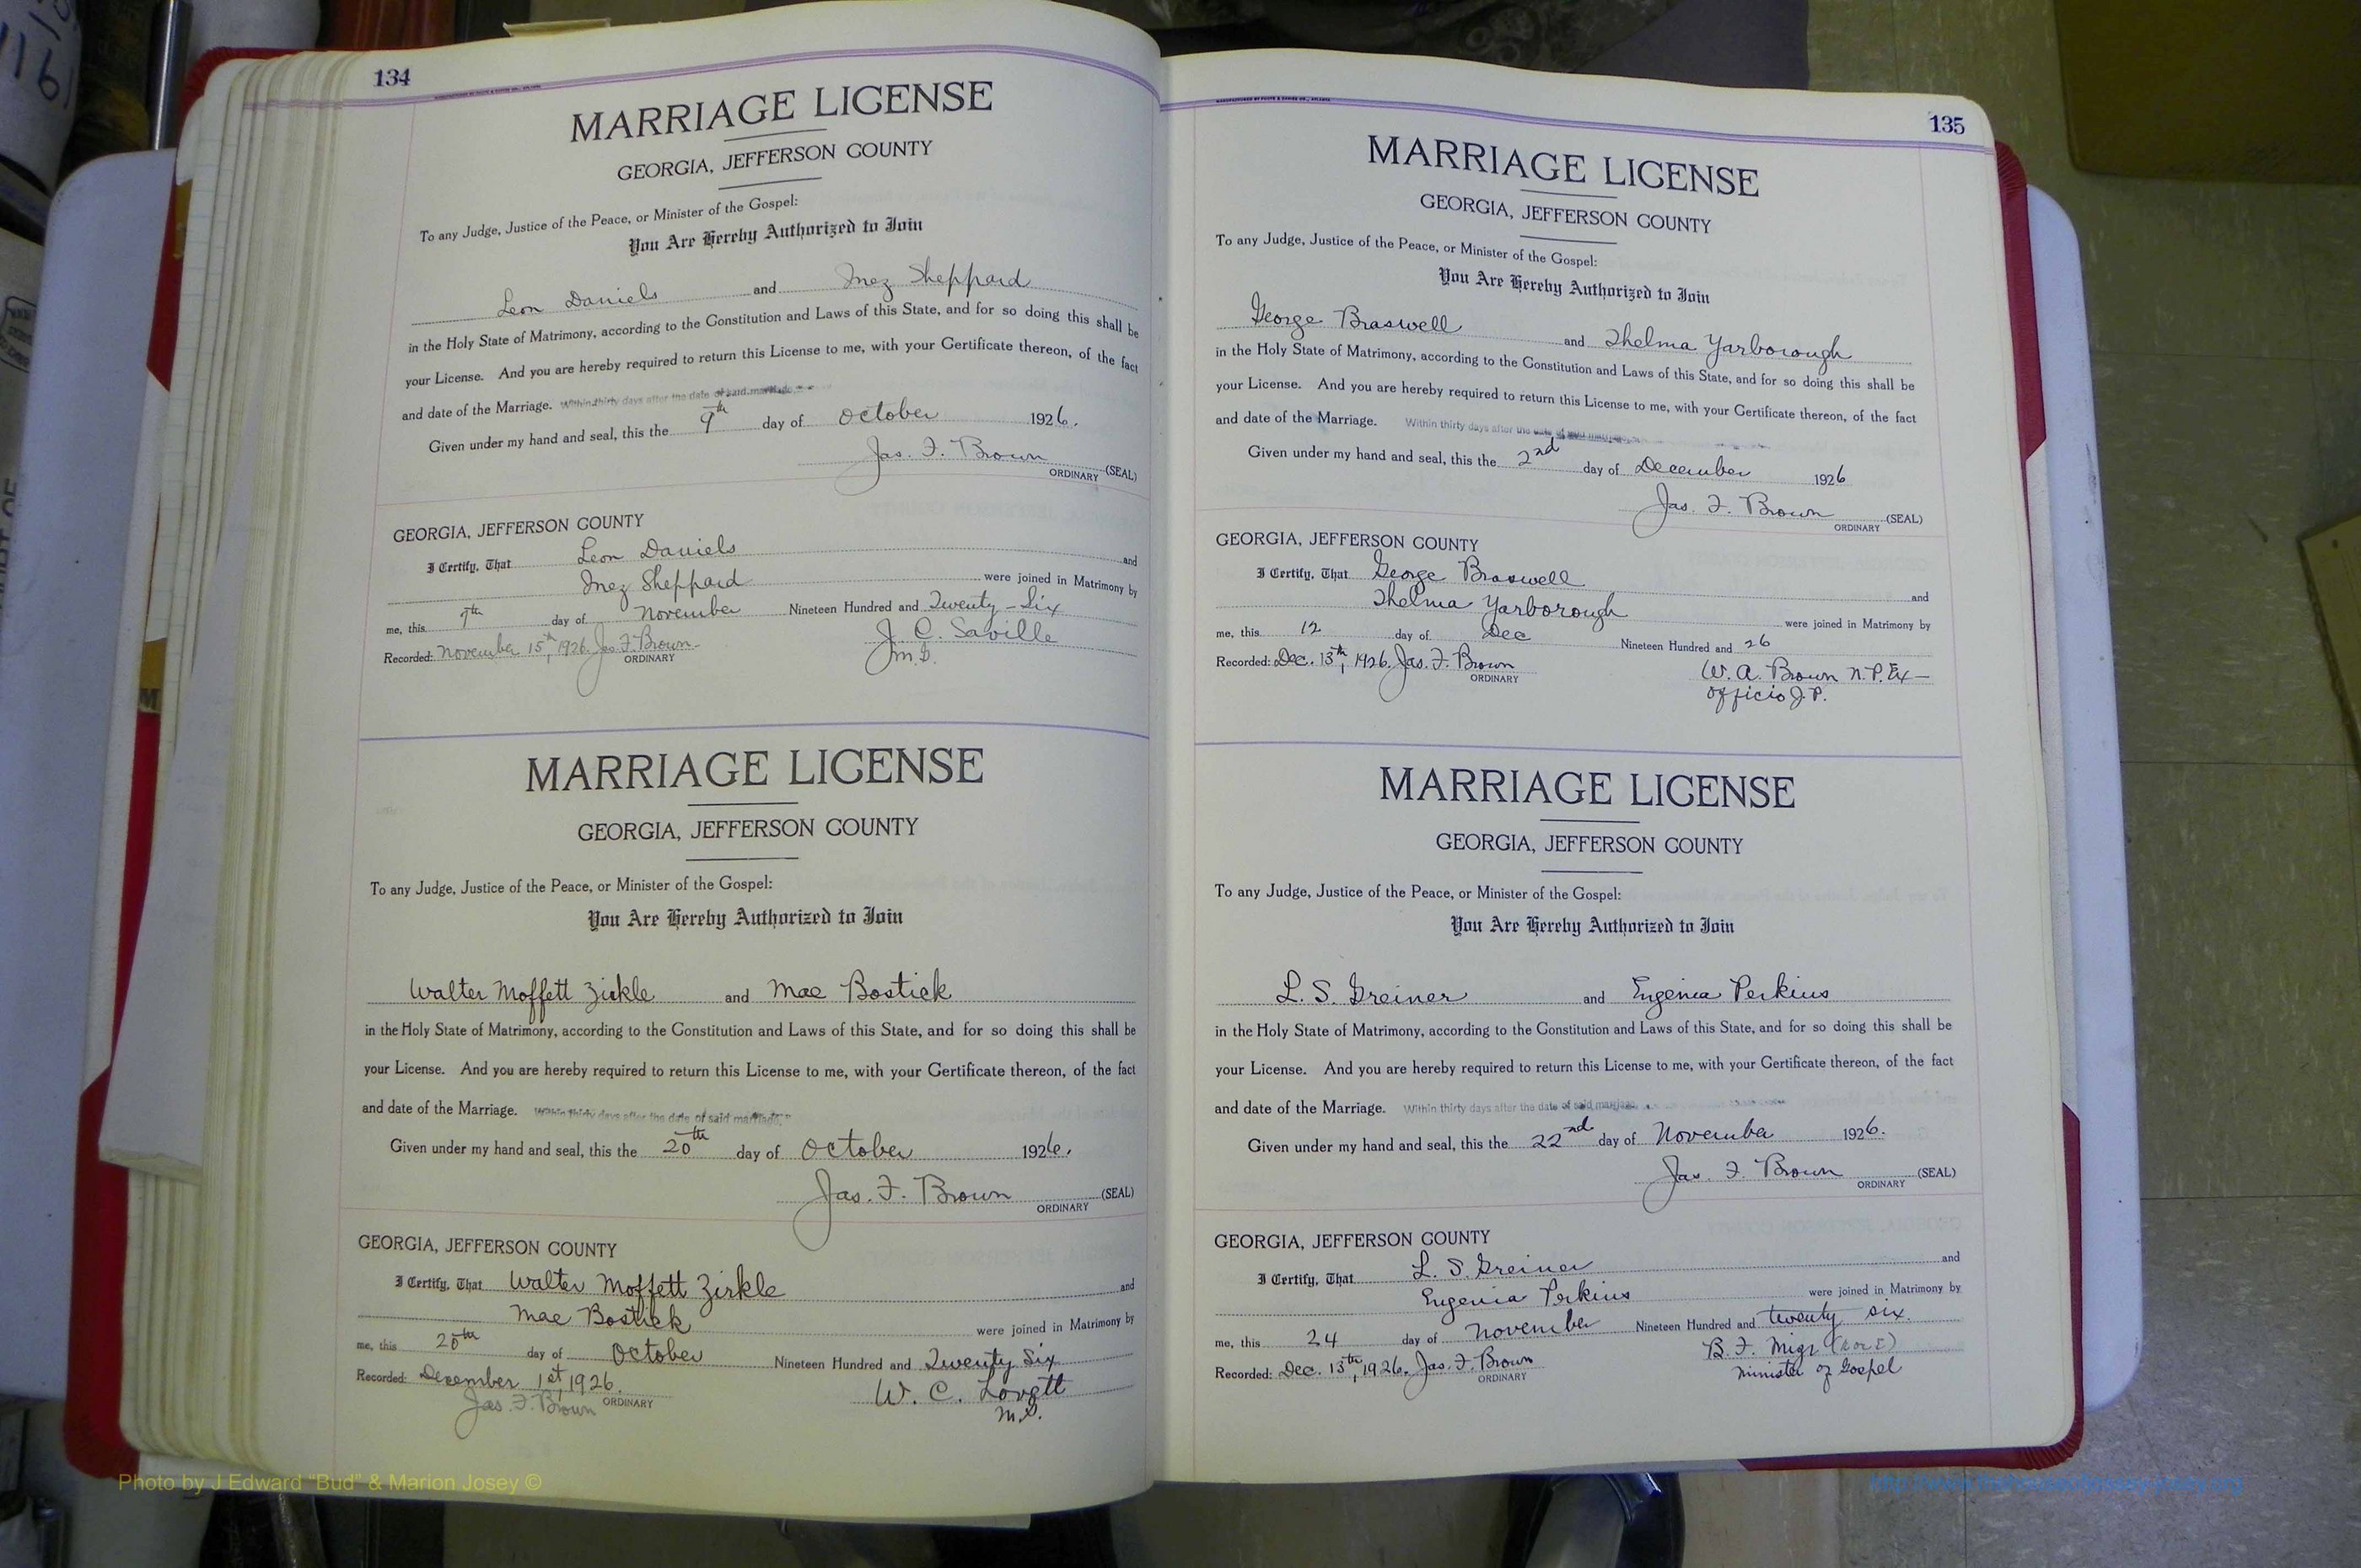 134
MARRIAGE LICENSE
GEORGIA, JEFFERSON COUNTY
To any Judge, Justice of the Peace, or Minister of the Gospel:
You Are Hereby Authorized to Join
Leon Daniels and Inez Sheppard
in the Holy State of Matrimony, according to the Constitution and Laws of this State, and for so doing this shall be
your License. And you are hereby required to return this License to me, with your Certificate thereon, of the fact
and date of the Marriage. Within thirty days after the date of said marriage.
Given under my hand and seal, this the 9th day of October 1926.
Jas. F. Brown (SEAL)
ORDINARY
GEORGIA, JEFFERSON COUNTY
I Certify, That Leon Daniels and
Inez Sheppard were joined in Matrimony by
me, this day of November Nineteen Hundred and Twenty-Six
Recorded: November 15th, 1926. Jas. F. Brown J. C. Saville
ORDINARY M.G.
MARRIAGE LICENSE
GEORGIA, JEFFERSON COUNTY
To any Judge, Justice of the Peace, or Minister of the Gospel:
You Are Hereby Authorized to Join
Walter Moffett Zirkle and Mae Bostick
in the Holy State of Matrimony, according to the Constitution and Laws of this State, and for so doing this shall be
your License. And you are hereby required to return this License to me, with your Certificate thereon, of the fact
and date of the Marriage. Within thirty days after the date of said marriage,
Given under my hand and seal, this the 20th day of October 1926.
Jas. F. Brown (SEAL)
ORDINARY
GEORGIA, JEFFERSON COUNTY
I Certify, That Walter Moffett Zirkle and
Mae Bostick were joined in Matrimony by
me, this 20th day of October Nineteen Hundred and Twenty Six
Recorded: December 1st, 1926. W. C. Lovett
Jas. F. Brown ORDINARY M.G.
135
MARRIAGE LICENSE
GEORGIA, JEFFERSON COUNTY
To any Judge, Justice of the Peace, or Minister of the Gospel:
You Are Hereby Authorized to Join
George Braswell and Thelma Yarborough
in the Holy State of Matrimony, according to the Constitution and Laws of this State, and for so doing this shall be
your License. And you are hereby required to return this License to me, with your Certificate thereon, of the fact
and date of the Marriage. Within thirty days after the date of said marriage
Given under my hand and seal, this the 2nd day of December 1926
Jas. F. Brown (SEAL)
ORDINARY
GEORGIA, JEFFERSON COUNTY
I Certify, That George Braswell and
Thelma Yarborough were joined in Matrimony by
me, this 12 day of Dec Nineteen Hundred and 26
Recorded: Dec. 13th, 1926. Jas. F. Brown W. A. Brown N.P. Ex-
ORDINARY officio J.P.
MARRIAGE LICENSE
GEORGIA, JEFFERSON COUNTY
To any Judge, Justice of the Peace, or Minister of the Gospel:
You Are Hereby Authorized to Join
L. S. Greiner and Eugenia Perkins
in the Holy State of Matrimony, according to the Constitution and Laws of this State, and for so doing this shall be
your License. And you are hereby required to return this License to me, with your Certificate thereon, of the fact
and date of the Marriage. Within thirty days after the date of said marriage
Given under my hand and seal, this the 22nd day of November 1926.
Jas. F. Brown (SEAL)
ORDINARY
GEORGIA, JEFFERSON COUNTY
I Certify, That L. S. Greiner and
Eugenia Perkins were joined in Matrimony by
me, this 24 day of November Nineteen Hundred and twenty six.
Recorded: Dec. 13th, 1926. Jas. F. Brown B. F.
ORDINARY Minister of Gospel
Photo by J Edward "Bud" & Marion Josey ©